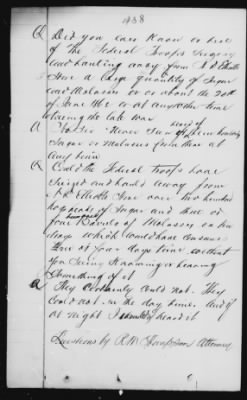 438
Q Did you ever know or hear
of the Federal troops seizing
and hauling away from N R Elliotts
store a large quantity of Sugar
and Molasses on or about the 20th
of June 1862 or at any other time
during the late war
A No Sir Never saw or heard of them hauling
Sugar or Molasses from there at
any time
Q Could the Federal troops have
seized and hauled away from
N R Elliotts store over two hundred
hogsheads of Sugar and that or
four hundred Barrels of Molasses on his
which would have consumed
three or four days time without
you seeing knowing or hearing
something of it
A They certainly could not. They
could not in the day time. And if
at night I should heard it
Questions by R M Attorney